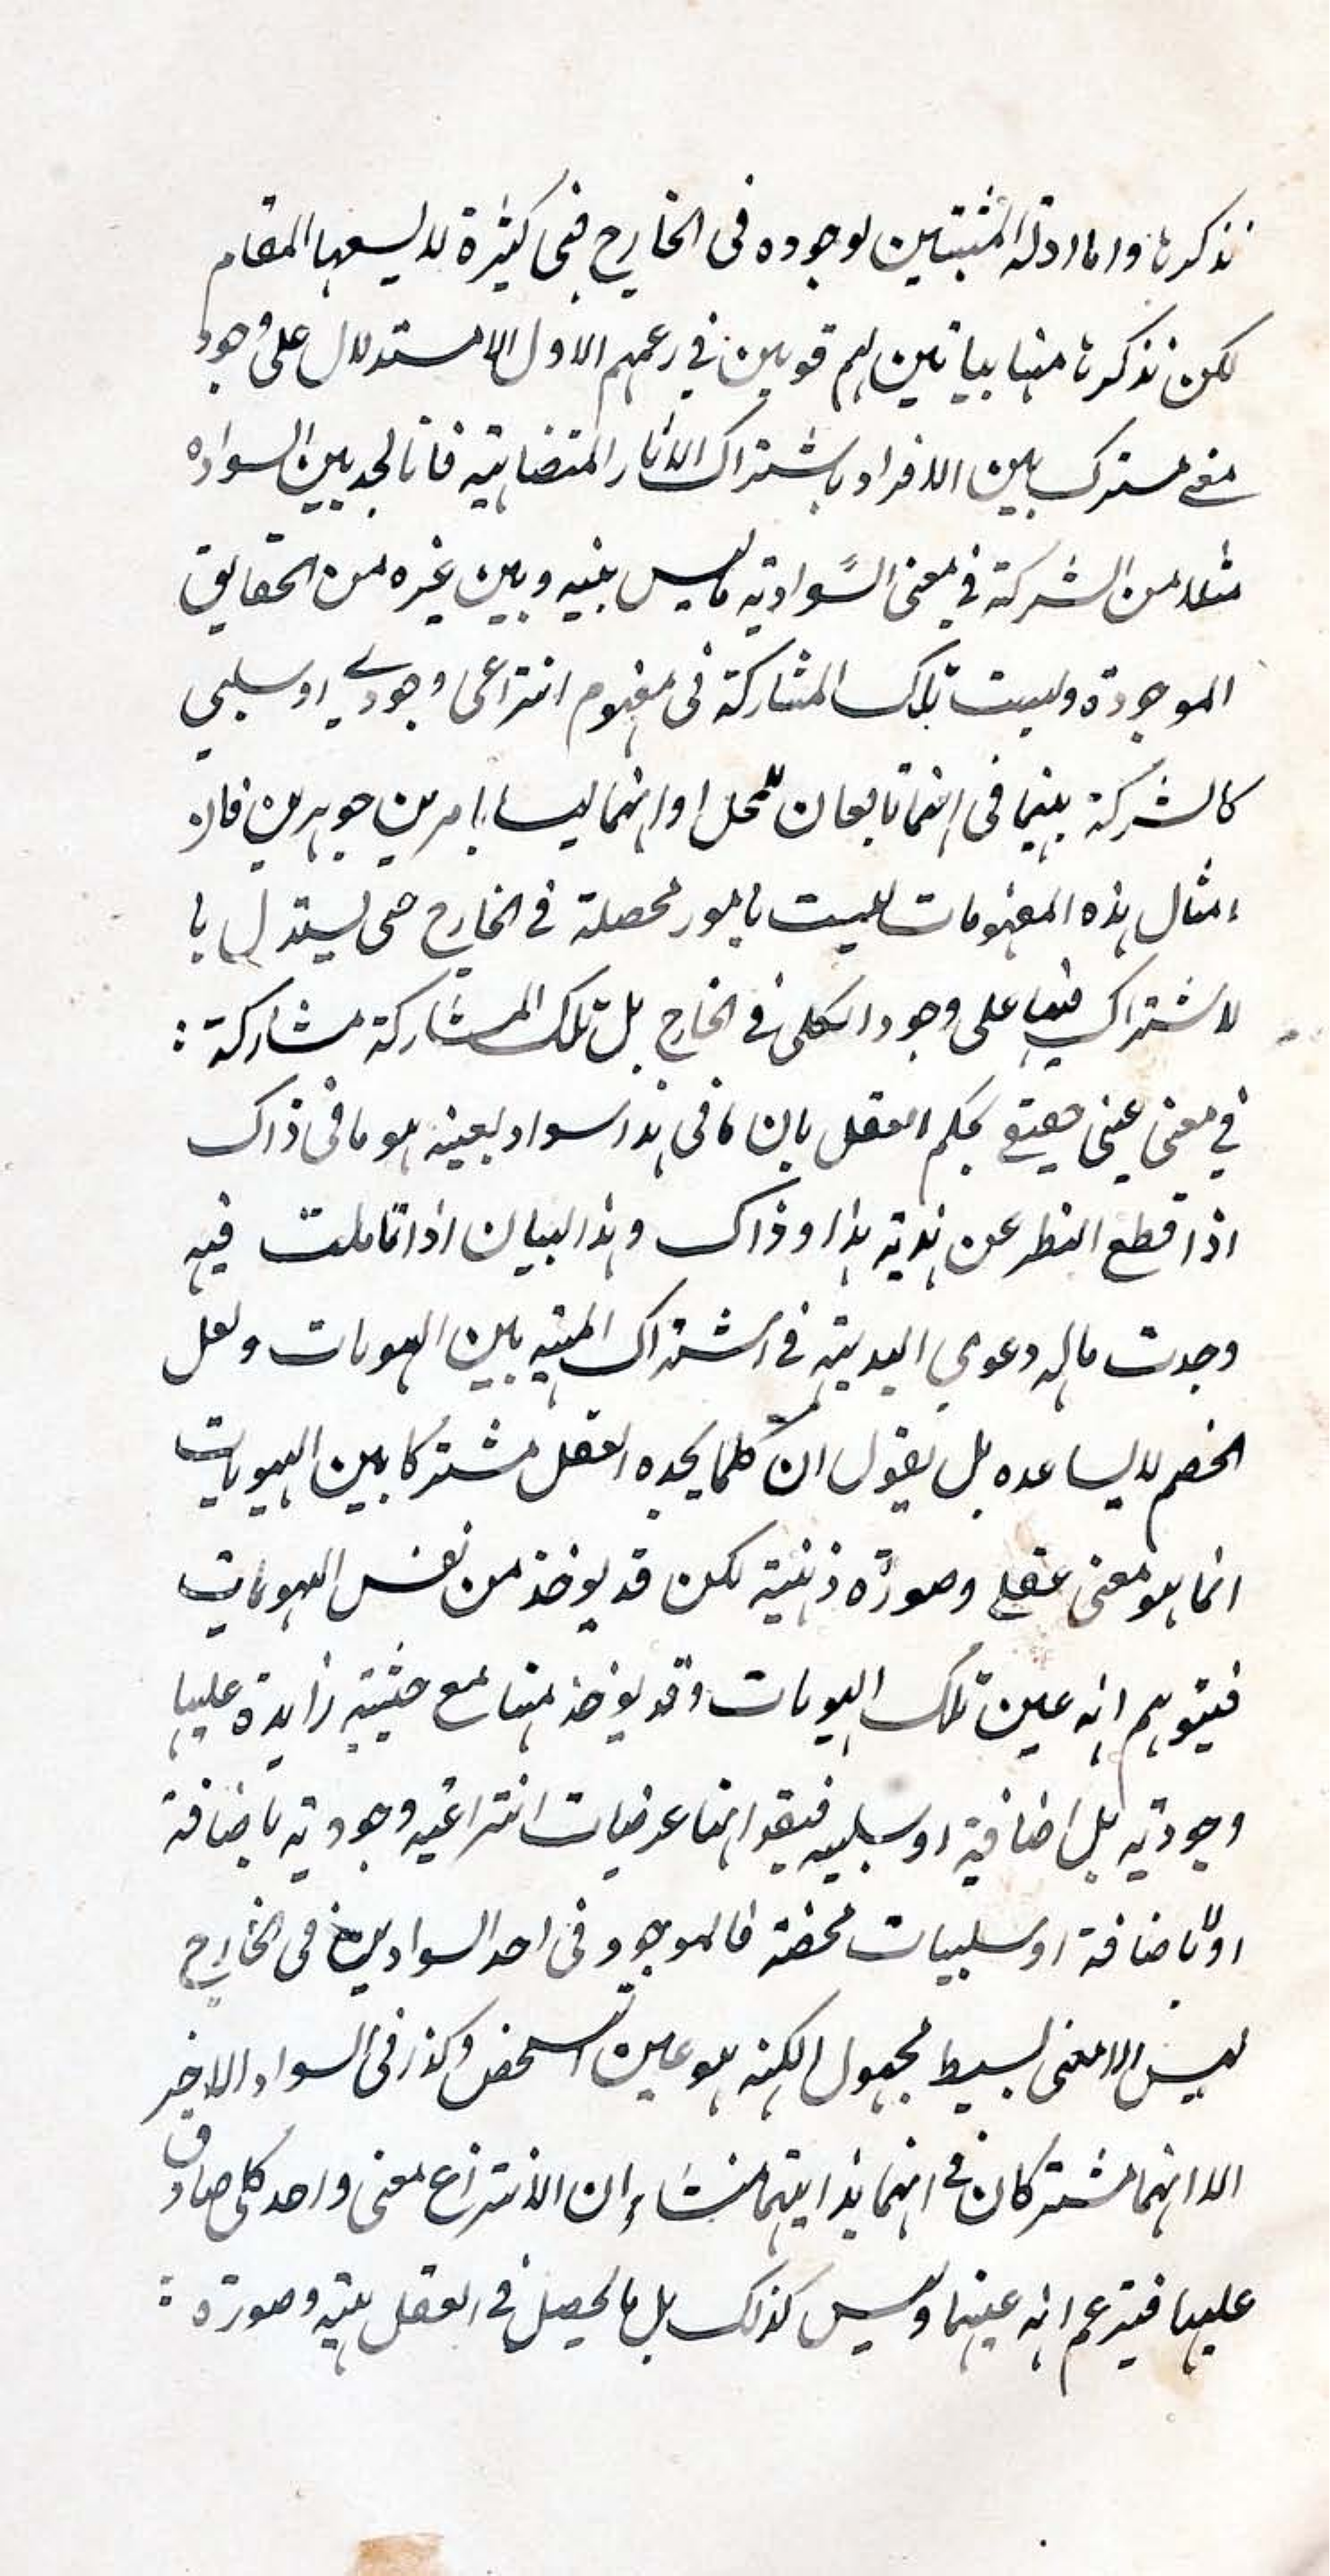 نذكرها واما ادلة المثبتين لوجوده فى الخارج فهى كثيرة لا يسعها المقام
لكن نذكرها منها بيانين لهم قويين في زعمهم الاول الاستدلال على وجود
معنى مشترك بين الافراد باشتراك الاثار المتضاهية فانا نجد بين السواده
مثلا من الشركة في معنى السوادية ما ليس بينه وبين غيره من الحقايق
الموجودة وليست تلك المشاركة فى مفهوم انتزاعى وجودي او سلبي
كالشركة بينهما فى انهما تابعان للمحل او انهما ليسا بامرين جوهرين فان
امثال هذه المفهومات ليست بامور محصلة في الخارج حتى يستدل با
لاشتراك فيها على وجود الكلى في الخارج بل تلك المشاركة مشاركة :
في معنى عينى حقيقي يحكم العقل بان ما فى هذا سواد بعينه هو ما فى ذاك
اذا قطع النظر عن هذية هذا وذاك وهذا البيان اذا تاملت فيه
وجدت ماله دعوى البديهة في اشتراك المهية بين الهويات ولعل
الخصم لا يساعده بل يقول ان كلما يجده العقل مشتركا بين الهويات
انما هو معنى عقلي وصورة ذهنية لكن قد يوخذ من نفس الهويات
فيتوهم انه عين تلك الهويات وقد يوخذ منها مع حيثية زايدة عليها
وجودية بل اضافية او سلبيه فيقو انها عرضيات انتزاعيه وجودية باضافة
اولا باضافة او سلبيات محضة فالموجود فى احد السوادين فى الخارج
ليس الا معنى بسيط مجهول الكنه هو عين تشخص وكذا فى السواد الاخر
الا انهما مشتركان في انهما بذاتيهما منشاءان لانتزاع معنى واحد كلى صادق
عليهما فيزعم انه عينهما وليس كذلك بل ما يحصل في العقل مهيه وصورة :